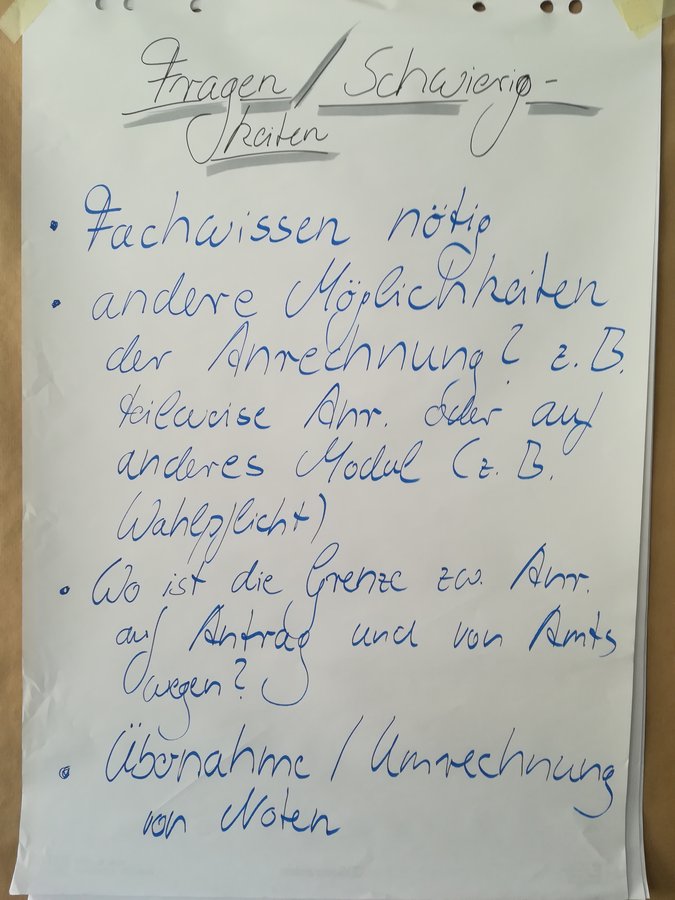 Fragen / Schwierig-
keiten
• Fachwissen nötig
• andere Möglichkeiten
der Anrechnung? z. B.
teilweise Anr. oder auf
anderes Modul (z. B.
Wahlpflicht)
• Wo ist die Grenze zw. Anr.
auf Antrag und von Amts
wegen?
• Übernahme / Umrechnung
von Noten